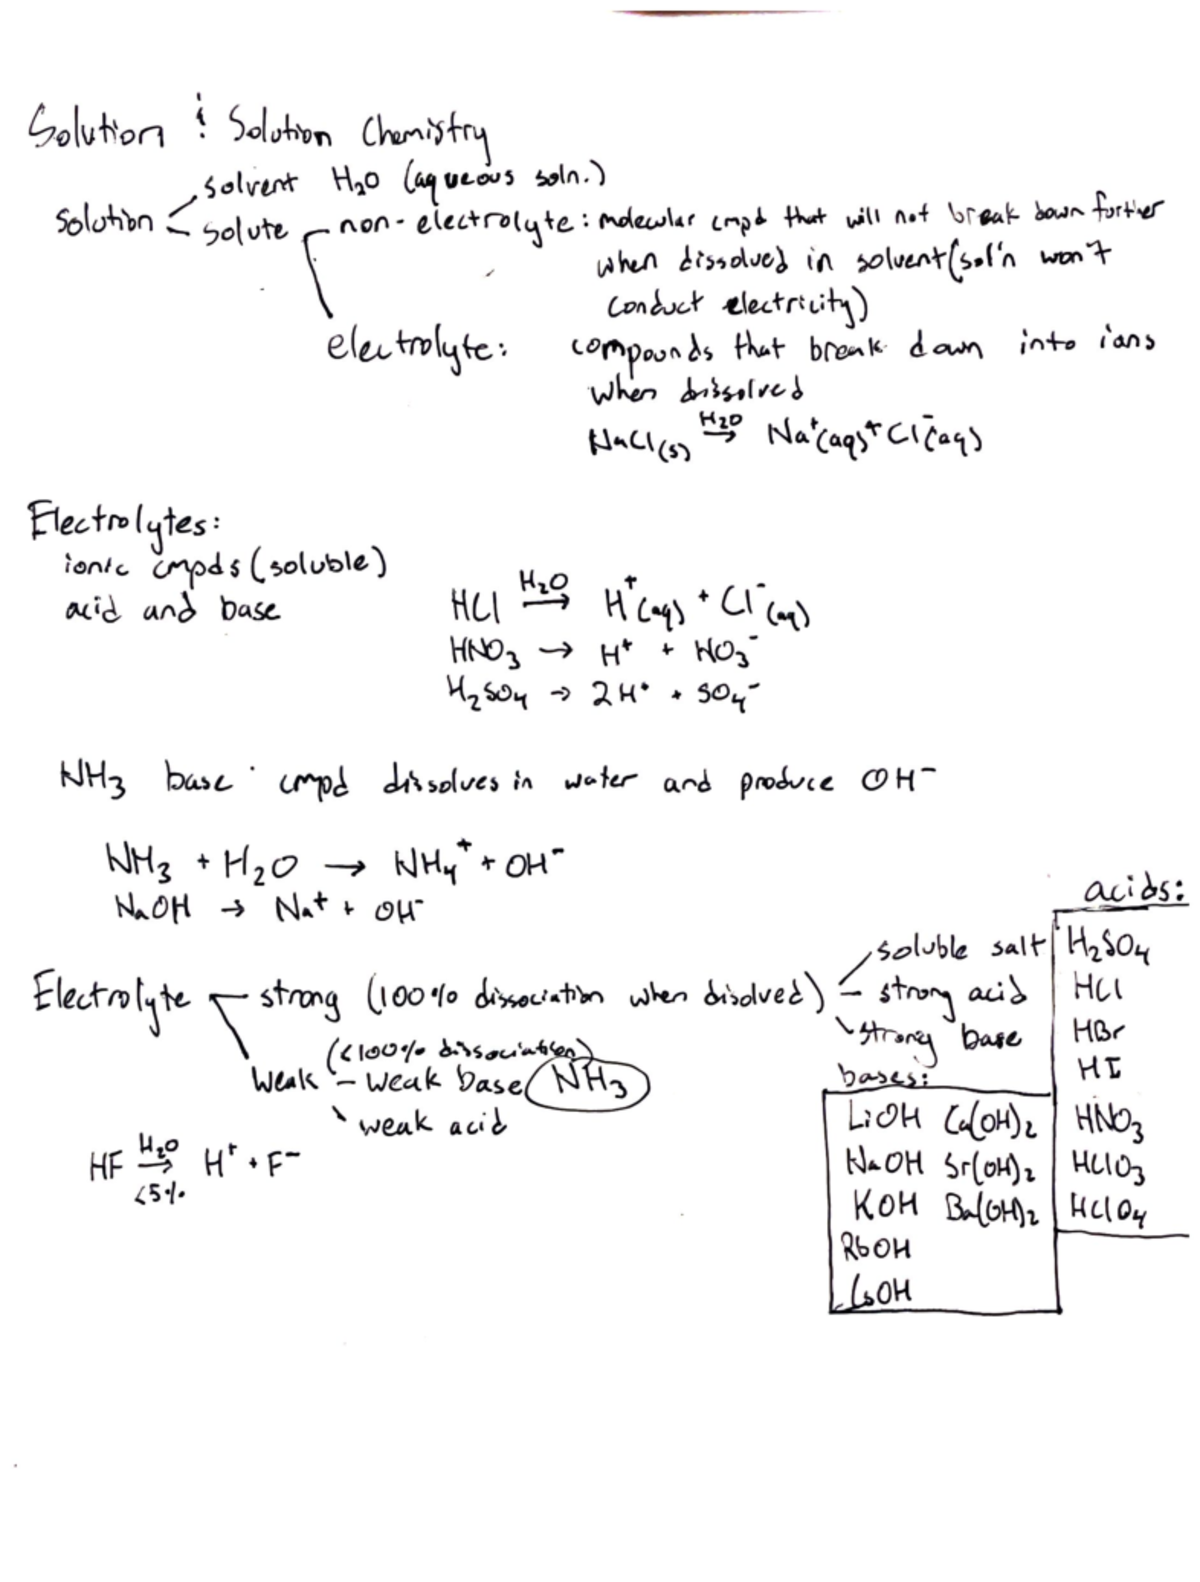 Solution & Solution Chemistry
solvent H₂O (aqueous soln.)
Solution
solute
non-electrolyte: molecular cmpd that will not break down further
when dissolved in solvent (sol'n won't
conduct electricity)
electrolyte: compounds that break down into ions
when dissolved
NaCl(s) →(H₂O) Na⁺(aq) + Cl⁻(aq)
Electrolytes:
ionic cmpds (soluble)
acid and base
HCl →(H₂O) H⁺(aq) + Cl⁻(aq)
HNO₃ → H⁺ + NO₃⁻
H₂SO₄ → 2H⁺ + SO₄⁻
NH₃ base · cmpd dissolves in water and produce OH⁻
NH₃ + H₂O → NH₄⁺ + OH⁻
NaOH → Na⁺ + OH⁻
Electrolyte
strong (100% dissociation when disolved)
soluble salt
strong acid
strong base
(<100% dissociation)
Weak - weak base (NH₃)
weak acid
HF →(H₂O, <5%) H⁺ + F⁻
bases:
LiOH Ca(OH)₂
NaOH Sr(OH)₂
KOH Ba(OH)₂
RbOH
CsOH
acids:
H₂SO₄
HCl
HBr
HI
HNO₃
HClO₃
HClO₄